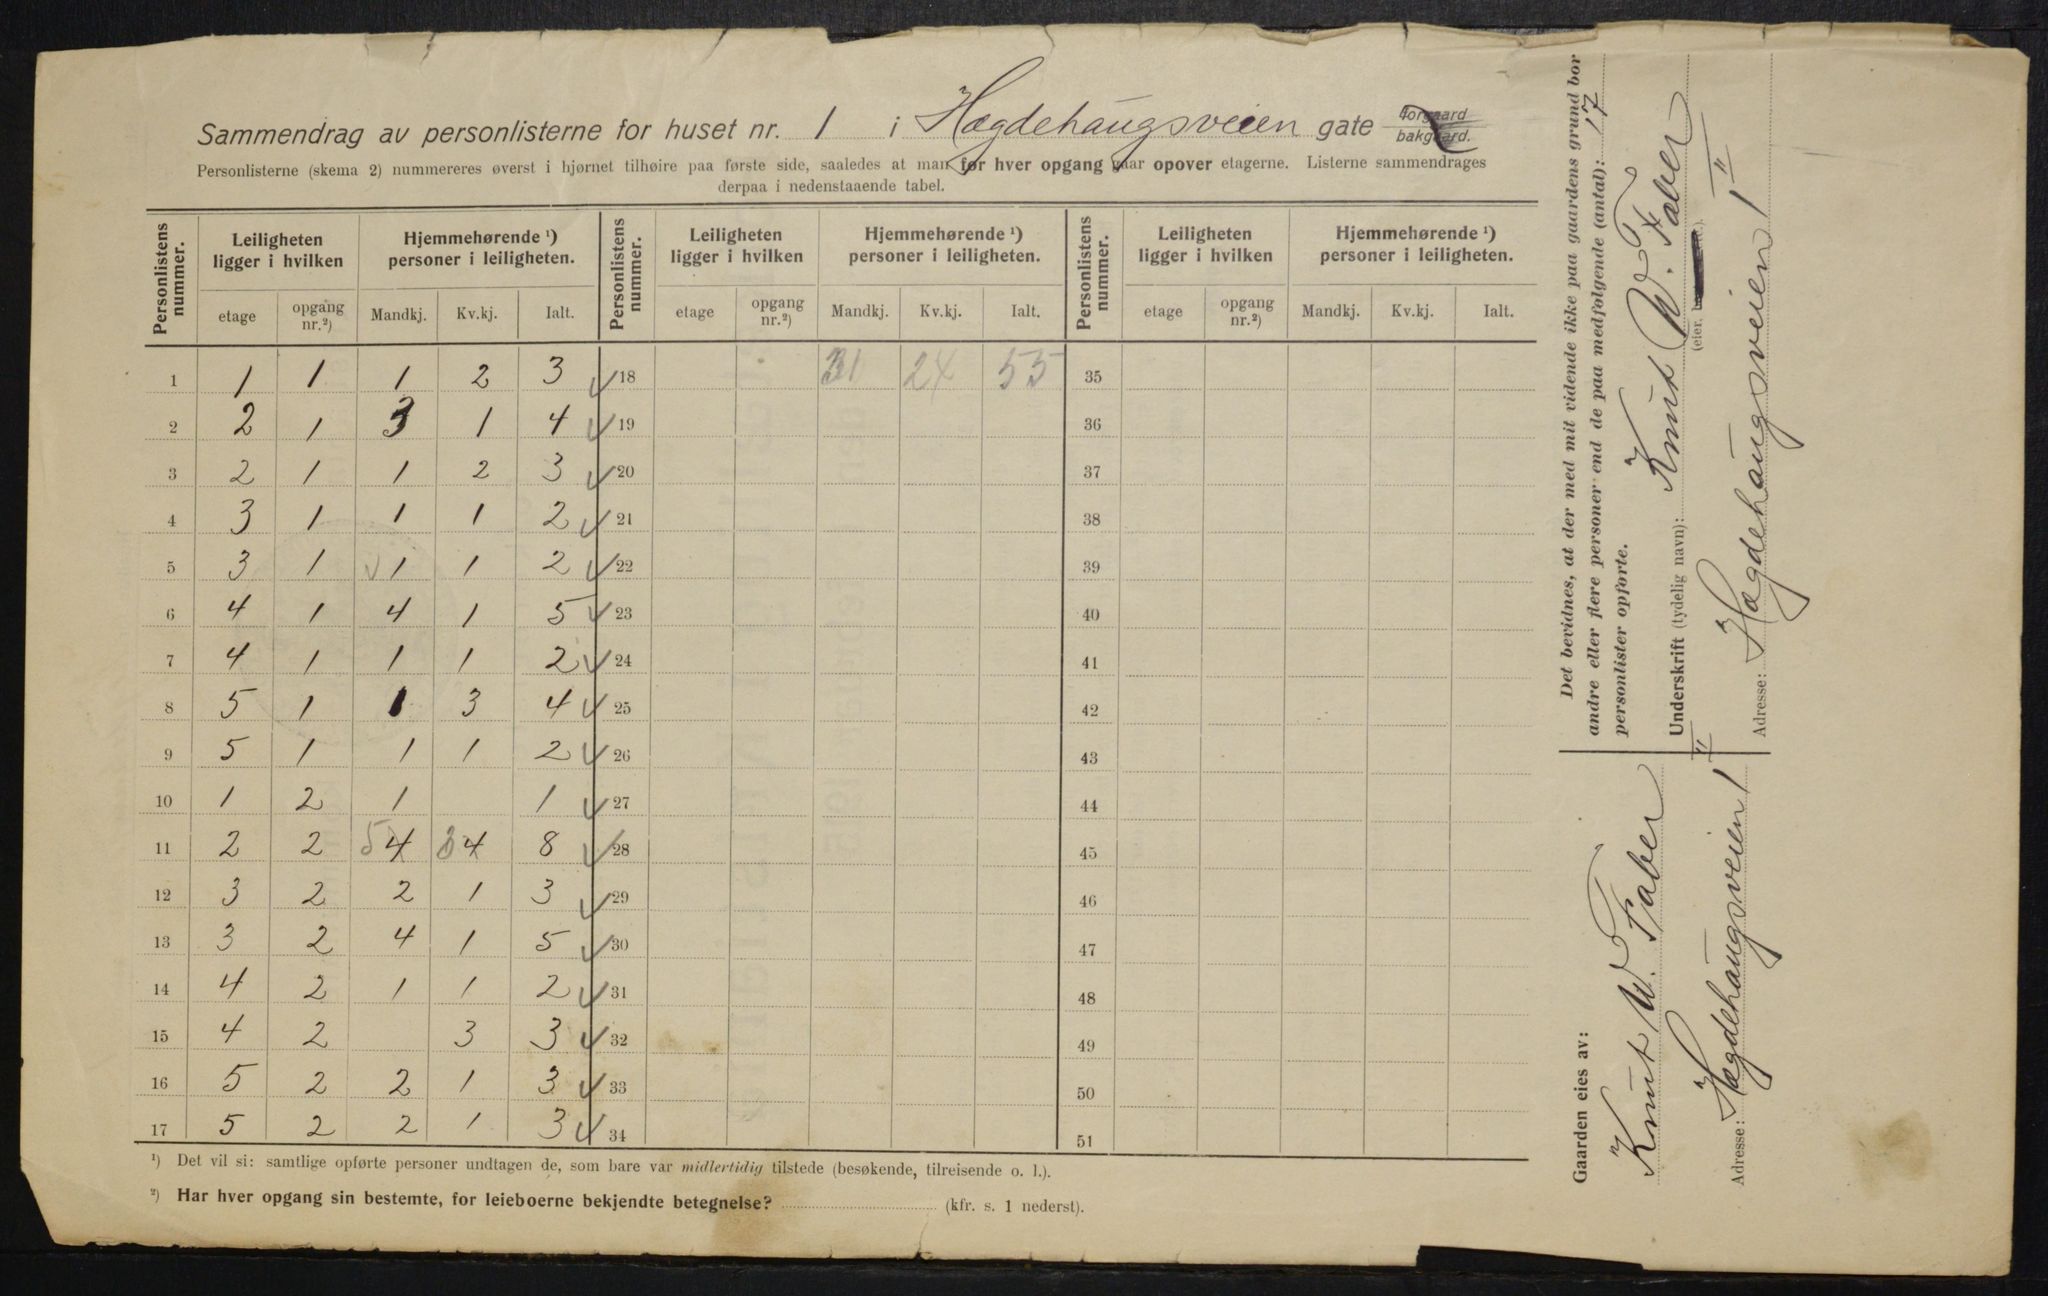 Sammendrag av personlisterne for huset nr. 1 i Hægdehaugsveien gate forgaard bakgaard.
Personlisterne (skema 2) nummereres øverst i hjørnet tilhøire paa første side, saaledes at man for hver opgang gaar opover etagerne. Listerne sammendrages
derpaa i nedenstaaende tabel.
Personlistens nummer. Leiligheten ligger i hvilken Hjemmehørende ¹) personer i leiligheten. Personlistens nummer. Leiligheten ligger i hvilken Hjemmehørende ¹) personer i leiligheten. Personlistens nummer. Leiligheten ligger i hvilken Hjemmehørende ¹) personer i leiligheten.
etage opgang nr.²) Mandkj. Kv.kj. Ialt. etage opgang nr.²) Mandkj. Kv.kj. Ialt. etage opgang nr.²) Mandkj. Kv.kj. Ialt.
1 1 1 1 2 3 18 31 24 55 35
2 2 1 3 1 4 19 36
3 2 1 1 2 3 20 37
4 3 1 1 1 2 21 38
5 3 1 1 1 2 22 39
6 4 1 4 1 5 23 40
7 4 1 1 1 2 24 41
8 5 1 1 3 4 25 42
9 5 1 1 1 2 26 43
10 1 2 1 1 27 44
11 2 2 5 4 3 4 8 28 45
12 3 2 2 1 3 29 46
13 3 2 4 1 5 30 47
14 4 2 1 1 2 31 48
15 4 2 3 3 32 49
16 5 2 2 1 3 33 50
17 5 2 2 1 3 34 51
¹) Det vil si: samtlige opførte personer undtagen de, som bare var midlertidig tilstede (besøkende, tilreisende o. l.).
²) Har hver opgang sin bestemte, for leieboerne bekjendte betegnelse? (kfr. s. 1 nederst).
Det bevidnes, at der med mit vidende ikke paa gaardens grund bor
andre eller flere personer end de paa medfølgende (antal): 17
personlister opførte.
Underskrift (tydelig navn): Knut W. Faber
(eier,
Adresse: Hægdehaugsveien 1 II
Gaarden eies av:
Knut W. Faber
Adresse: Hægdehaugsveien 1 II